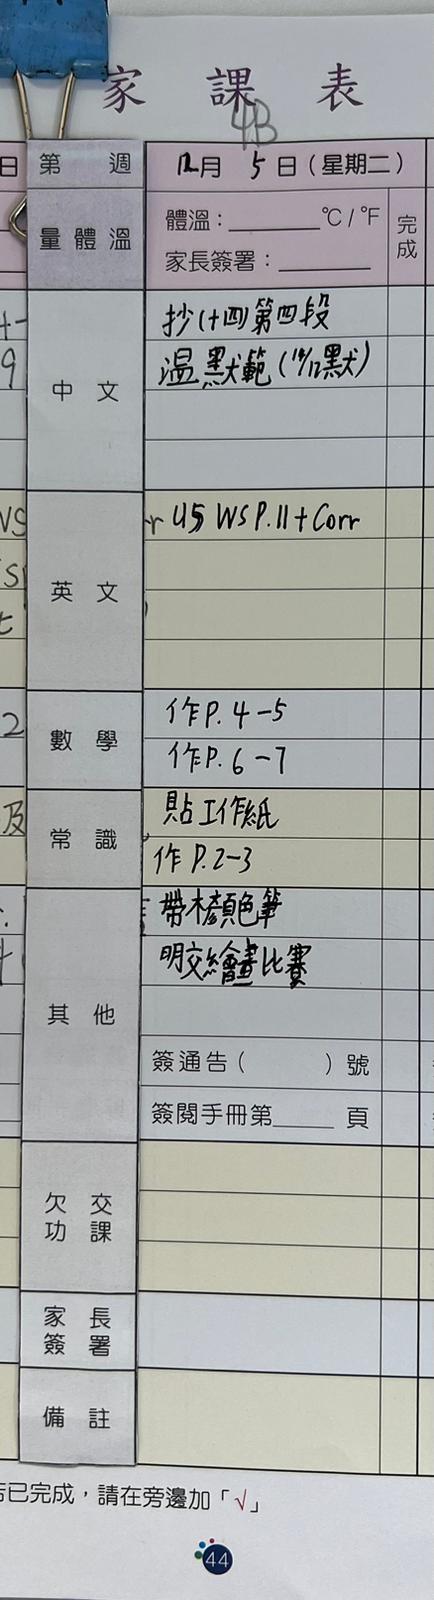 家課表
4B
日 第 週 12月 5日(星期二)
量體溫 體溫：______°C/°F 完成
家長簽署：______
中文 抄(十四)第四段
9 溫默範(14/12默)
英文 U5 WS P.11+Corr
2 數學 作P.4-5
作P.6-7
及 常識 貼工作紙
作P.2-3
其他 帶木顏色筆
明交繪畫比賽
簽通告( )號
簽閱手冊第____頁
欠交功課
家長簽署
備註
已完成，請在旁邊加「√」
44